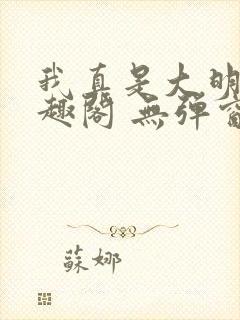 我真是大明
趣閣 無彈窗
蘇娜